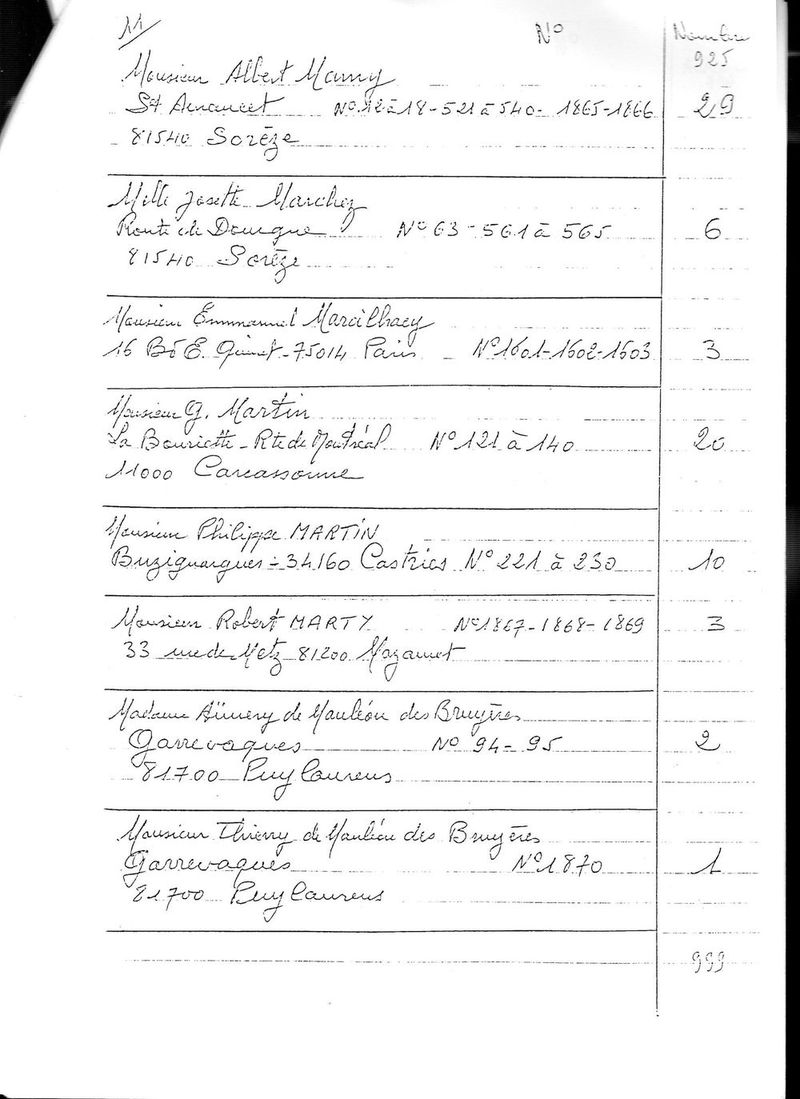 11/
N° Nombre
925
Monsieur Albert Mamy
St Amancet N° 12 à 18 - 521 à 540 - 1865-1866 29
81540 Sorèze
Melle Josette Marchez
Route de Dourgne N° 63 - 561 à 565 6
81540 Sorèze
Monsieur Emmanuel Marcilhacy
16 Bd E. Quinet - 75014 Paris N° 1601-1602-1603 3
Monsieur G. Martin
La Bouriette - Rte de Montréal N° 121 à 140 20
11000 Carcassonne
Monsieur Philippe MARTIN
Buzignargues - 34160 Castries N° 221 à 230 10
Monsieur Robert MARTY N° 1867-1868-1869 3
33 rue de Metz 81200 Mazamet
Madame Aïmery de Mauléon des Bruyères
Garrevaques N° 94-95 2
81700 Puylaurens
Monsieur Thierry de Mauléon des Bruyères
Garrevaques N° 1870 1
81700 Puylaurens
999